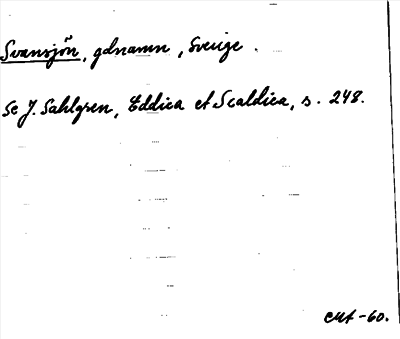 Svansjön, gdnamn, Sverige.
Se J. Sahlgren, Eddica et Scaldica, s. 248.
CMA-60.